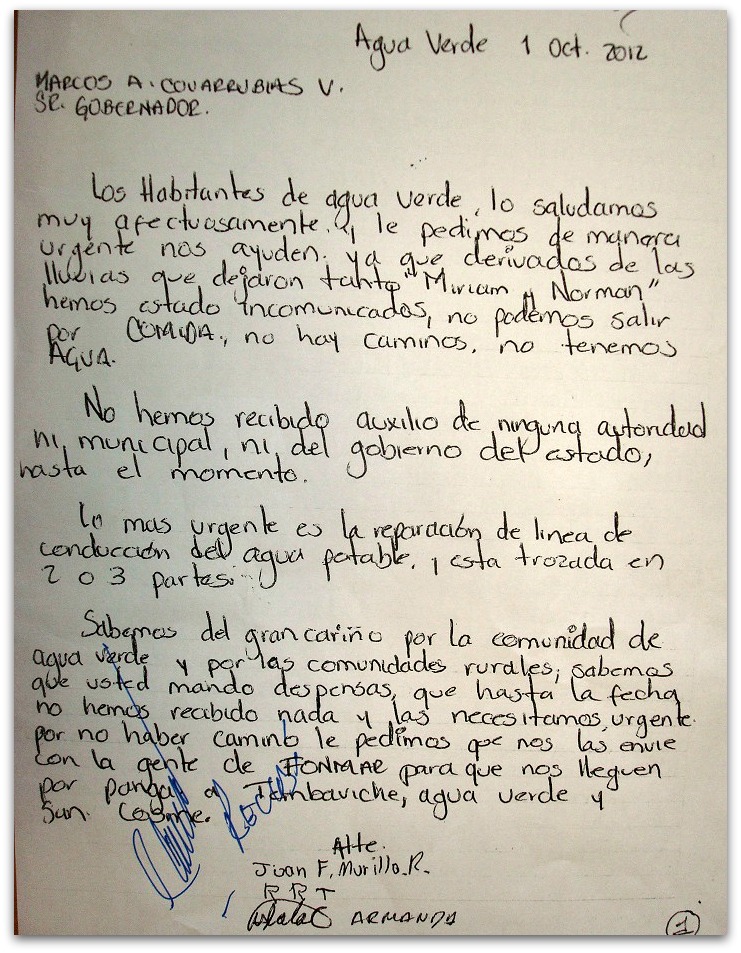 Agua Verde 1 Oct. 2012
MARCOS A. COVARRUBIAS V.
SR. GOBERNADOR.
Los Habitantes de agua verde, lo saludamos
muy afectuosamente. y le pedimos de manera
urgente nos ayuden. ya que derivados de las
lluvias que dejaron tanto "Miriam y Norman"
hemos estado incomunicados, no podemos salir
por COMIDA., no hay caminos. no tenemos
AGUA.
No hemos recibido auxilio de ninguna autoridad
ni, municipal, ni, del gobierno del estado,
hasta el momento.
Lo mas urgente es la reparación de linea de
conducción del agua potable. y esta trozada en
2 o 3 partes.
Sabemos del gran cariño por la comunidad de
agua verde y por las comunidades rurales, sabemos
que usted mando despensas, que hasta la fecha
no hemos recibido nada y las necesitamos, urgente.
por no haber camino le pedimos que nos las envie
con la gente de FONMAR para que nos lleguen
por panga a Tembaviche, agua verde y
San Cosme.
RECIBI
Atte.
Juan F. Murillo. R.
R R T
ARMANDA
1